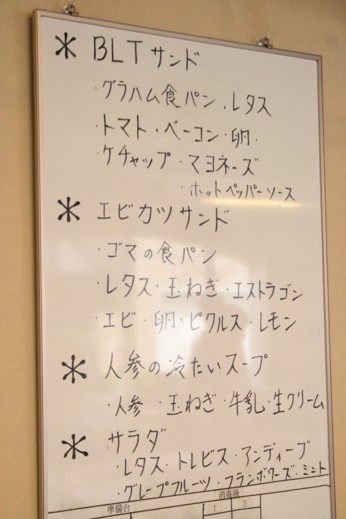 * BLTサンド
・グラハム食パン・レタス
・トマト・ベーコン・卵・
・ケチャップ・マヨネーズ
・ホットペッパーソース
* エビカツサンド
・ゴマの食パン
・レタス・玉ねぎ・エストラゴン
・エビ・卵・ピクルス・レモン
* 人参の冷たいスープ
・人参・玉ねぎ・牛乳・生クリーム
* サラダ
・レタス・トレビス・アンディーブ
・グレープフルーツ・フランボワーズ・ミント
準備台 消毒液
1 2